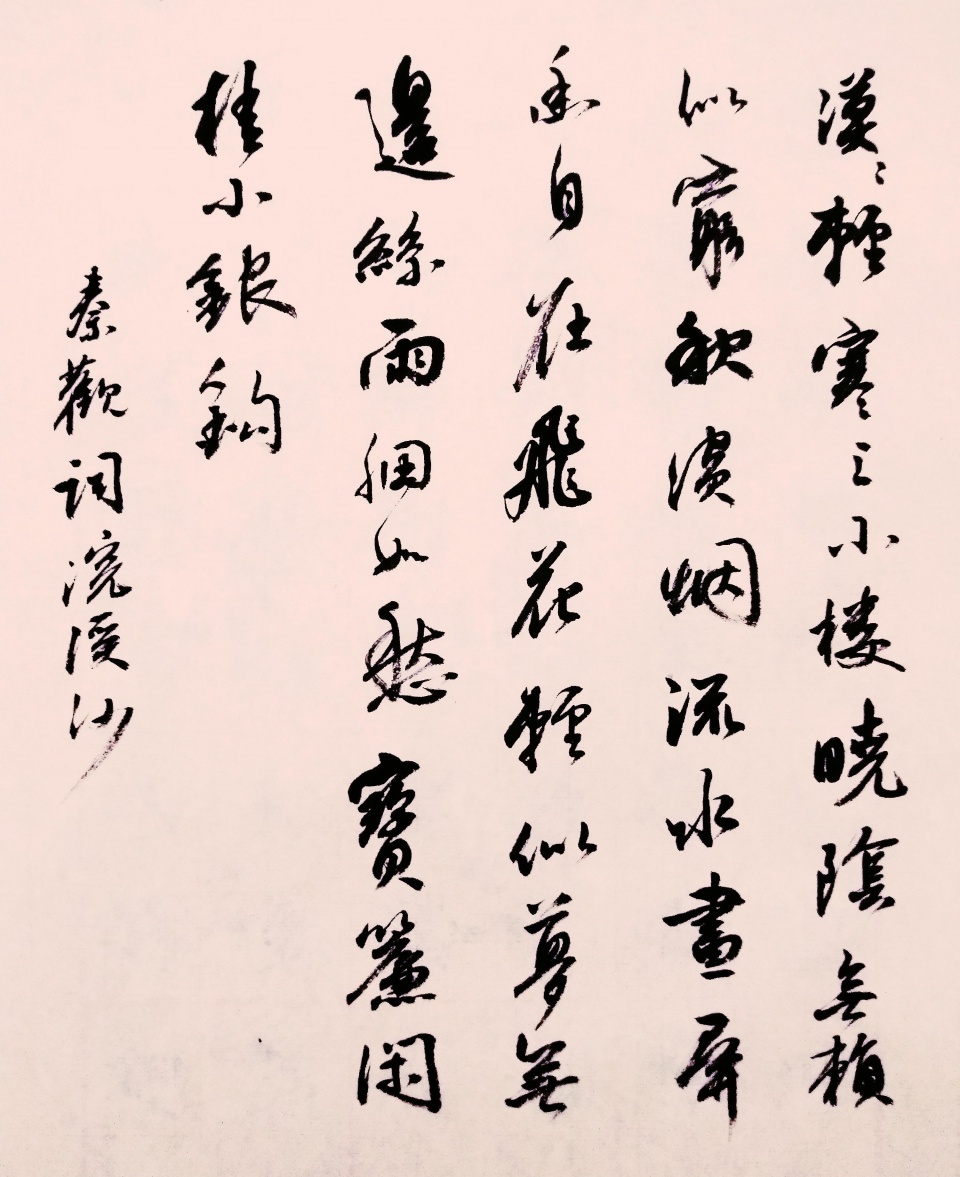 漠〻輕寒上小楼曉陰無賴
似窮秋淡烟流水畫屏
幽自在飛花輕似夢無
邊絲雨細如愁寶簾閑
挂小銀鈎
秦觀詞浣溪沙